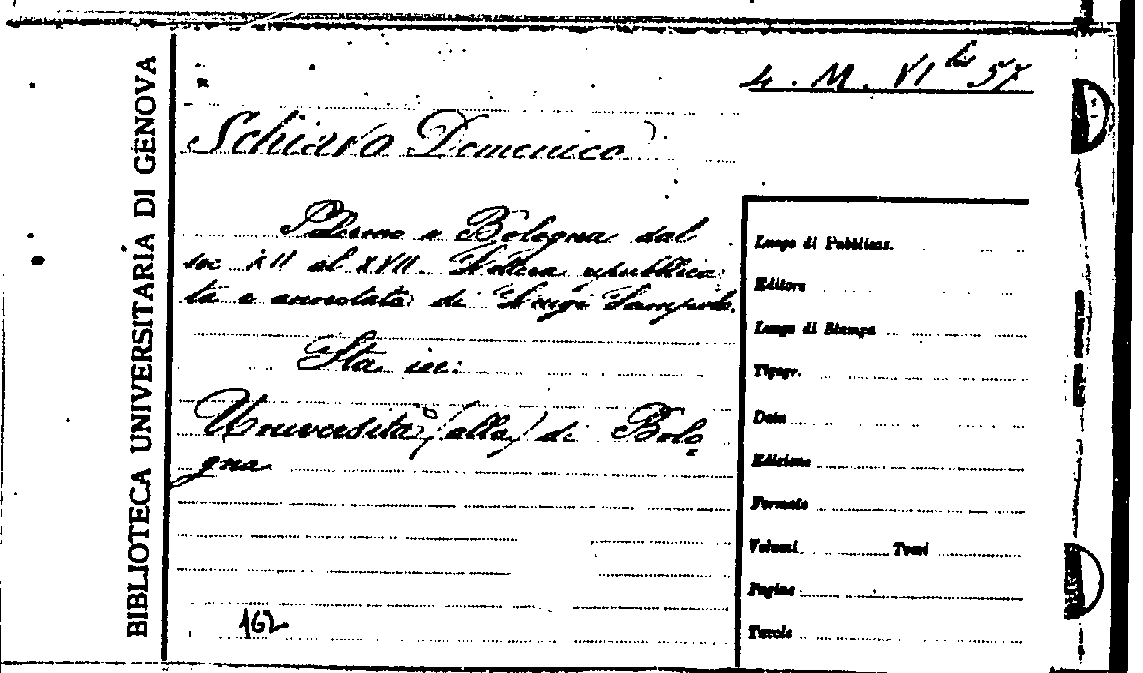 BIBLIOTECA UNIVERSITARIA DI GENOVA
4. M. VI bis 57
Schiavo Domenico
Palermo e Bologna dal
sec XII al XVII. Lettera ripubblica-
ta e annotata di Luigi Sampolo.
Sta in:
Università (alla) di Bolo
gna
162
Luogo di Pubblicaz.
Editore
Luogo di Stampa
Tipogr.
Data
Edizione
Formato
Volumi Tomi
Pagine
Tavole